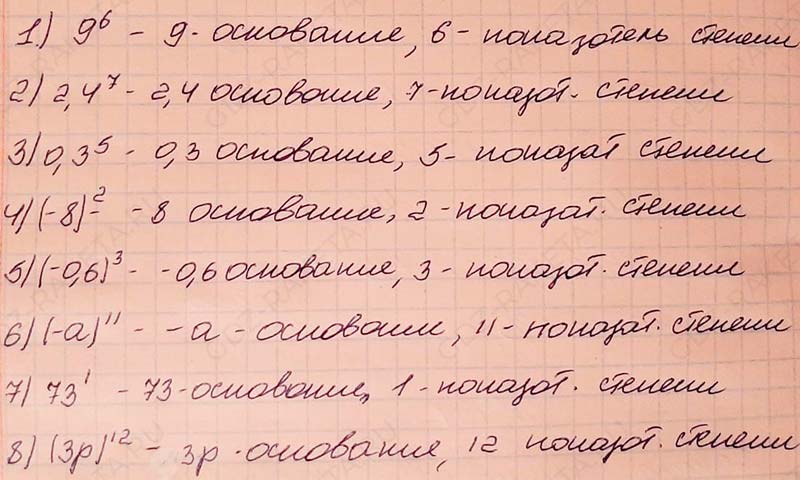 1) 9⁶ - 9 - основание, 6 - показатель степени
2) 2,4⁷ - 2,4 основание, 7 - показат. степени
3) 0,3⁵ - 0,3 основание, 5 - показат степени
4) (-8)² - -8 основание, 2 - показат. степени
5) (-0,6)³ - -0,6 основание, 3 - показат. степени
6) (-a)¹¹ - -a - основани, 11 - показат. степени
7) 73¹ - 73 - основание, 1 - показат. степени
8) (3p)¹² - 3p - основание, 12 показат. степени